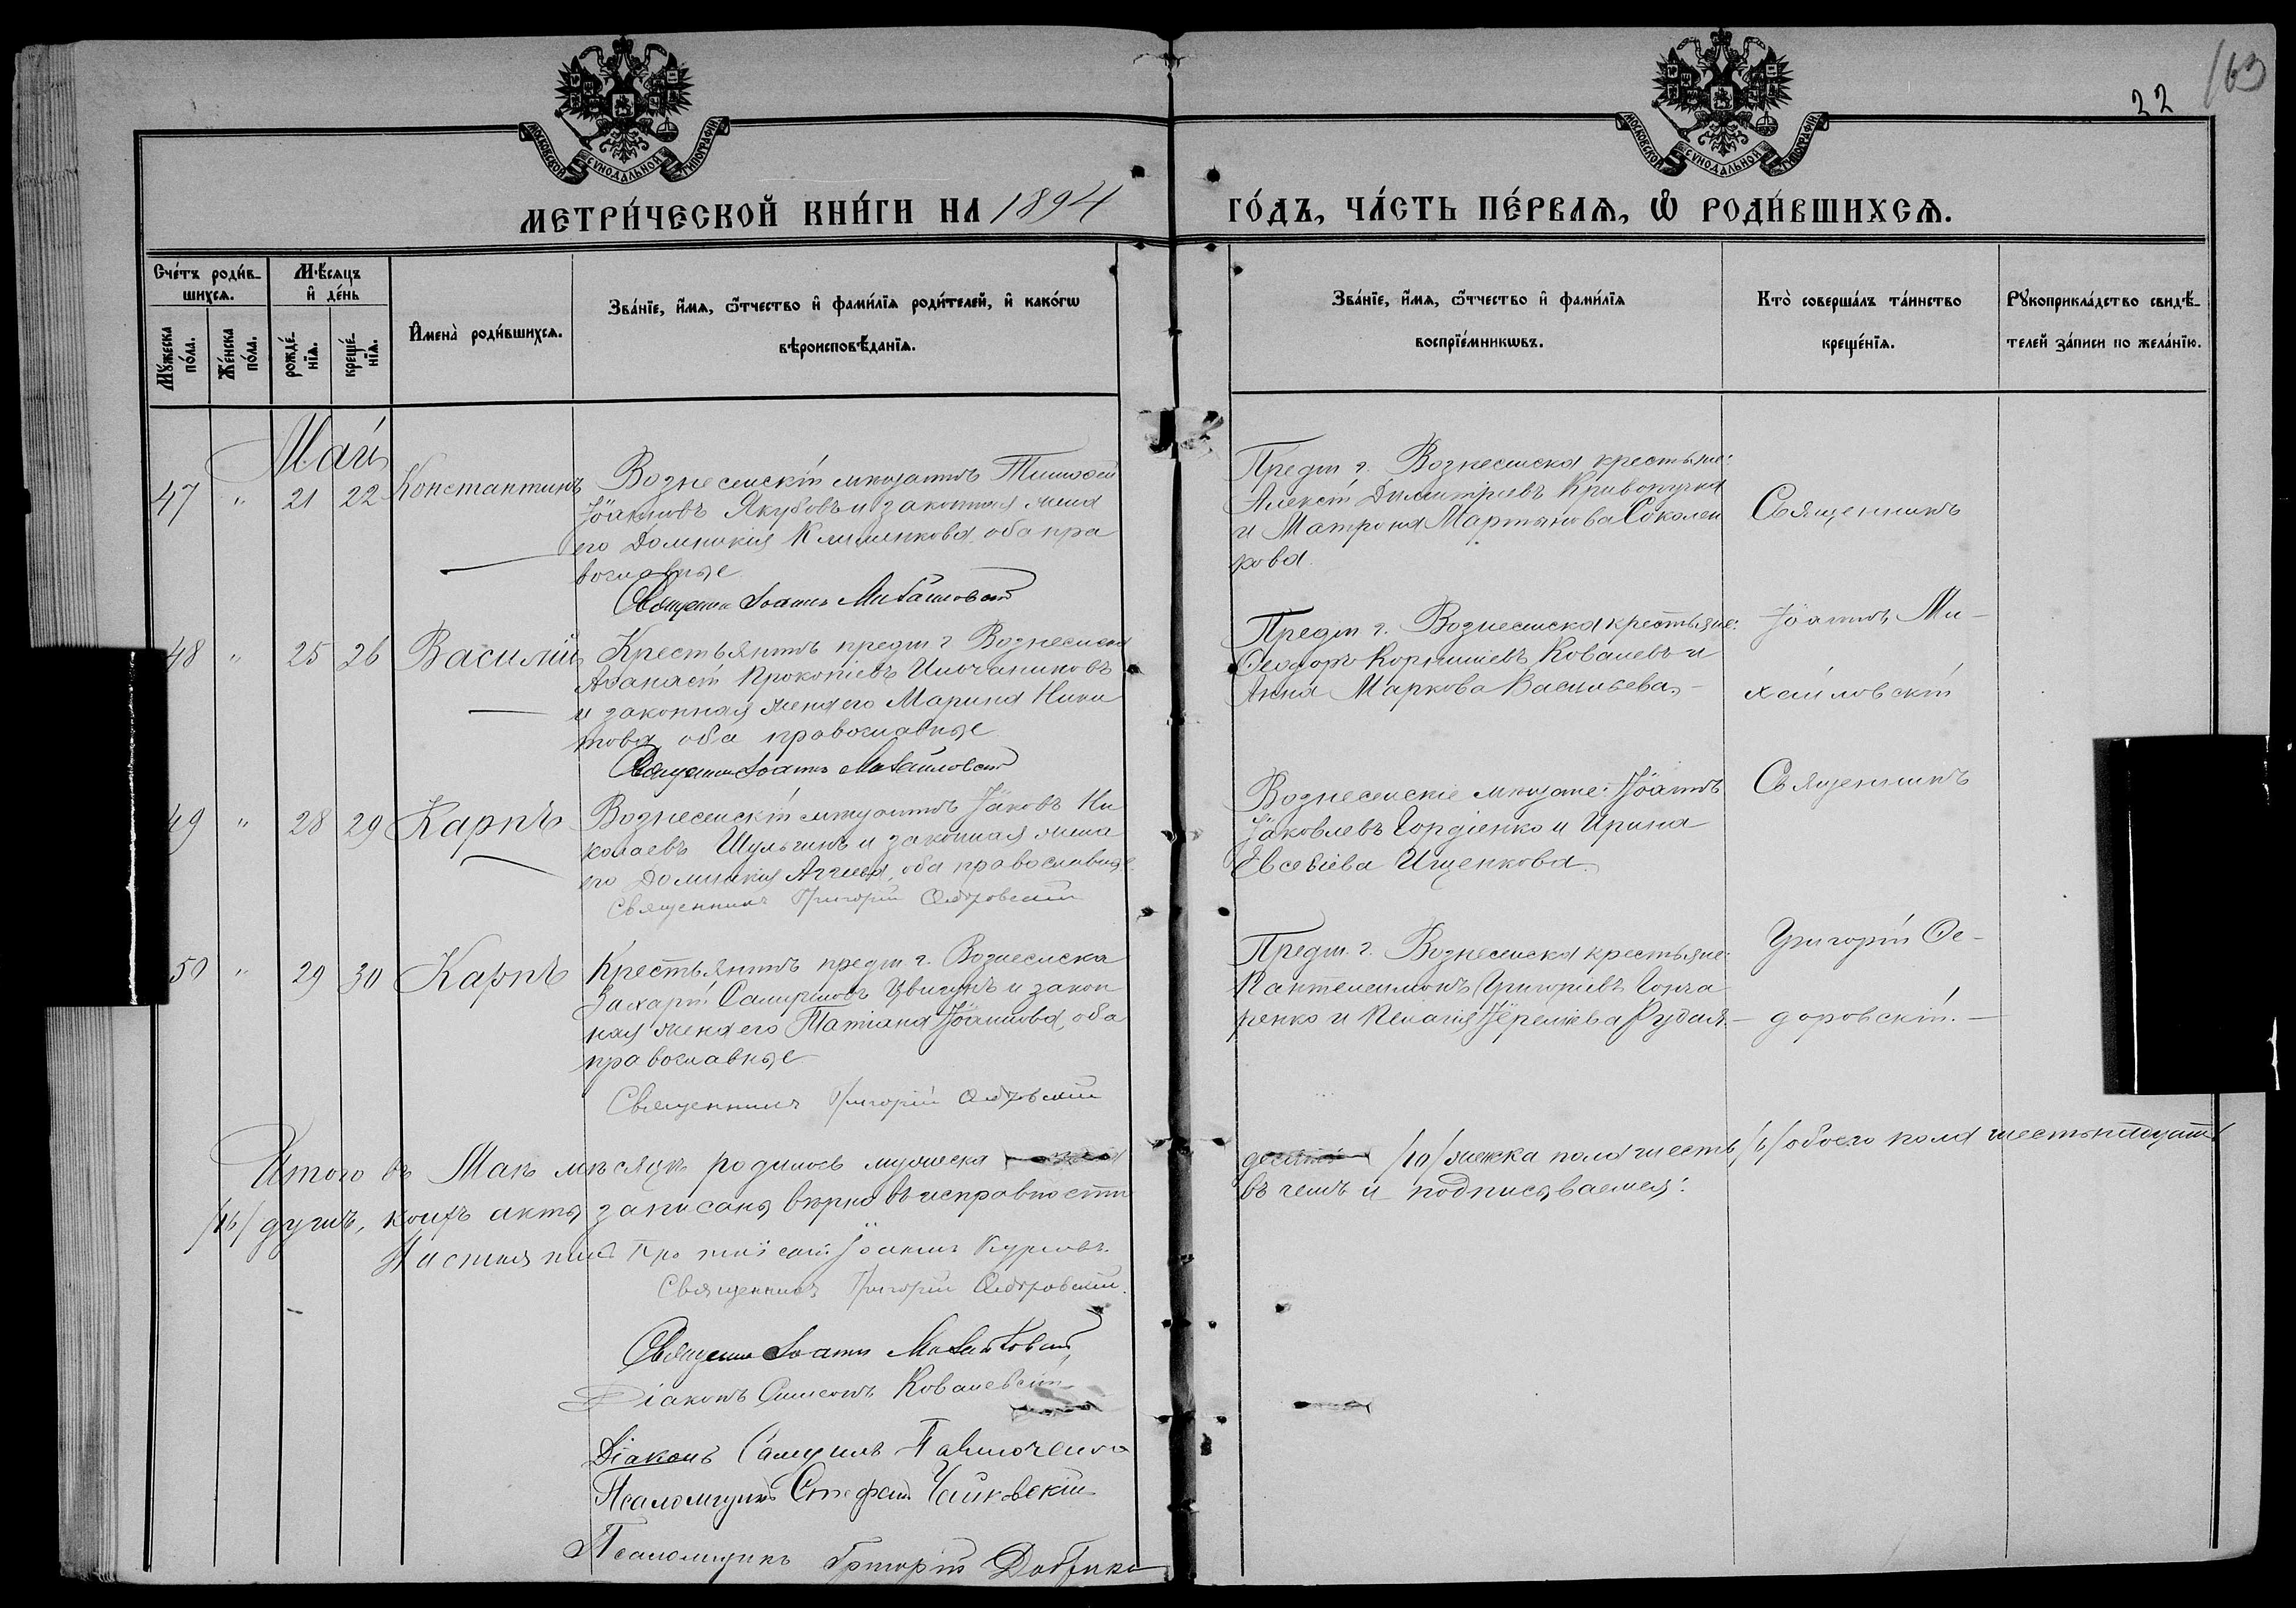 163
22
МОСКОВСКОЙ СѴНОДАЛЬНОЙ ТИПОГРАФІИ
МОСКОВСКОЙ СѴНОДАЛЬНОЙ ТИПОГРАФІИ
МЕТРИ́ЧЕСКОЙ КНИ́ГИ НА 1894 ГО́ДЪ, ЧА́СТЬ ПЕ́РВАѦ, Ѡ҆ РОДИ́ВШИХСѦ.
Сче́тъ роди́в-
шихсѧ.
Мꙋ́жеска по́ла.
Же́нска по́ла.
Мѣ́сѧцъ
и҆ де́нь
рожде́-
нїѧ.
креще́-
нїѧ.
И҆мена̀ роди́вшихсѧ.
Зва́нїе, и҆́мѧ, ѻ҆́тчество и҆ фами́лїѧ роди́телей, и҆ како́гѡ
вѣроисповѣ́данїѧ.
Зва́нїе, и҆́мѧ, ѻ҆́тчество и҆ фами́лїѧ
воспрїе́мникѡвъ.
Кто̀ соверша́лъ та́инство
креще́нїѧ.
Рꙋкоприкла́дство свидѣ́-
телей за́писи по жела́нїю.
Май
47 " 21 22 Константинъ
Вознесенскій мѣщанинъ Тимофей
Іоанновъ Якубовъ и законная жена
его Домникія Климинкова, оба пра
вославные
Священ Іоаннъ Михайловскій
Предм. г. Вознесенска крестьяне:
Алексѣй Димитріевъ Криворучка
и Матрона Мартынова Соколен
кова.
Священникъ
48 " 25 26 Василій
Крестьянинъ предм. г. Вознесенска
Аѳанасій Прокопіевъ
и законная жена его Марина Ники
това, оба православные
Священ Іоаннъ Михайловскій
Предм. г. Вознесенска крестьяне:
Ѳеодоръ Корниліевъ Ковалевъ и
Анна Маркова Васильева.-
Іоаннъ Ми-
хайловскій
49 " 28 29 Карпъ
Вознесенскій мѣщанинъ Іаковъ Ни
колаевъ Шульгинъ и законная жена
его Домникія Аггеева, оба православные
Священникъ Григорій Ѳедоровскій
Вознесенскіе мѣщане: Іоаннъ
Іаковлевъ Гордіенко и Ирина
Евсевіева Ищенкова.
Священникъ
50 " 29 30 Карпъ
Крестьянинъ предм. г. Вознесенска
Захарій Цвигунъ и закон
ная жена его Татіана Іоаннова, оба
православные
Священникъ Григорій Ѳедоровскій
Предм. г. Вознесенска крестьяне:
Пантелеимонъ Григоріевъ Гонча
ренко и Пелагія Іереміева Рудая.-
Григорій Ѳе-
доровскій.-
Итого въ Маѣ мѣсяцѣ родилось мужеска
десять /10/ женска пола шесть /6/ обоего пола шестьнадцать
/16/ душъ, коихъ акты записаны вѣрно въ исправности
въ чемъ и подписываемся:
Настоятель Протоіерей Іоаннъ
Священникъ Григорій Ѳедоровскій.
Священ Іоаннъ Михайловскій
Діаконъ Симеонъ Ковалевскій
Діаконъ Самуилъ
Псаломщикъ Стефанъ Чайковскій
Псаломщикъ Григорій